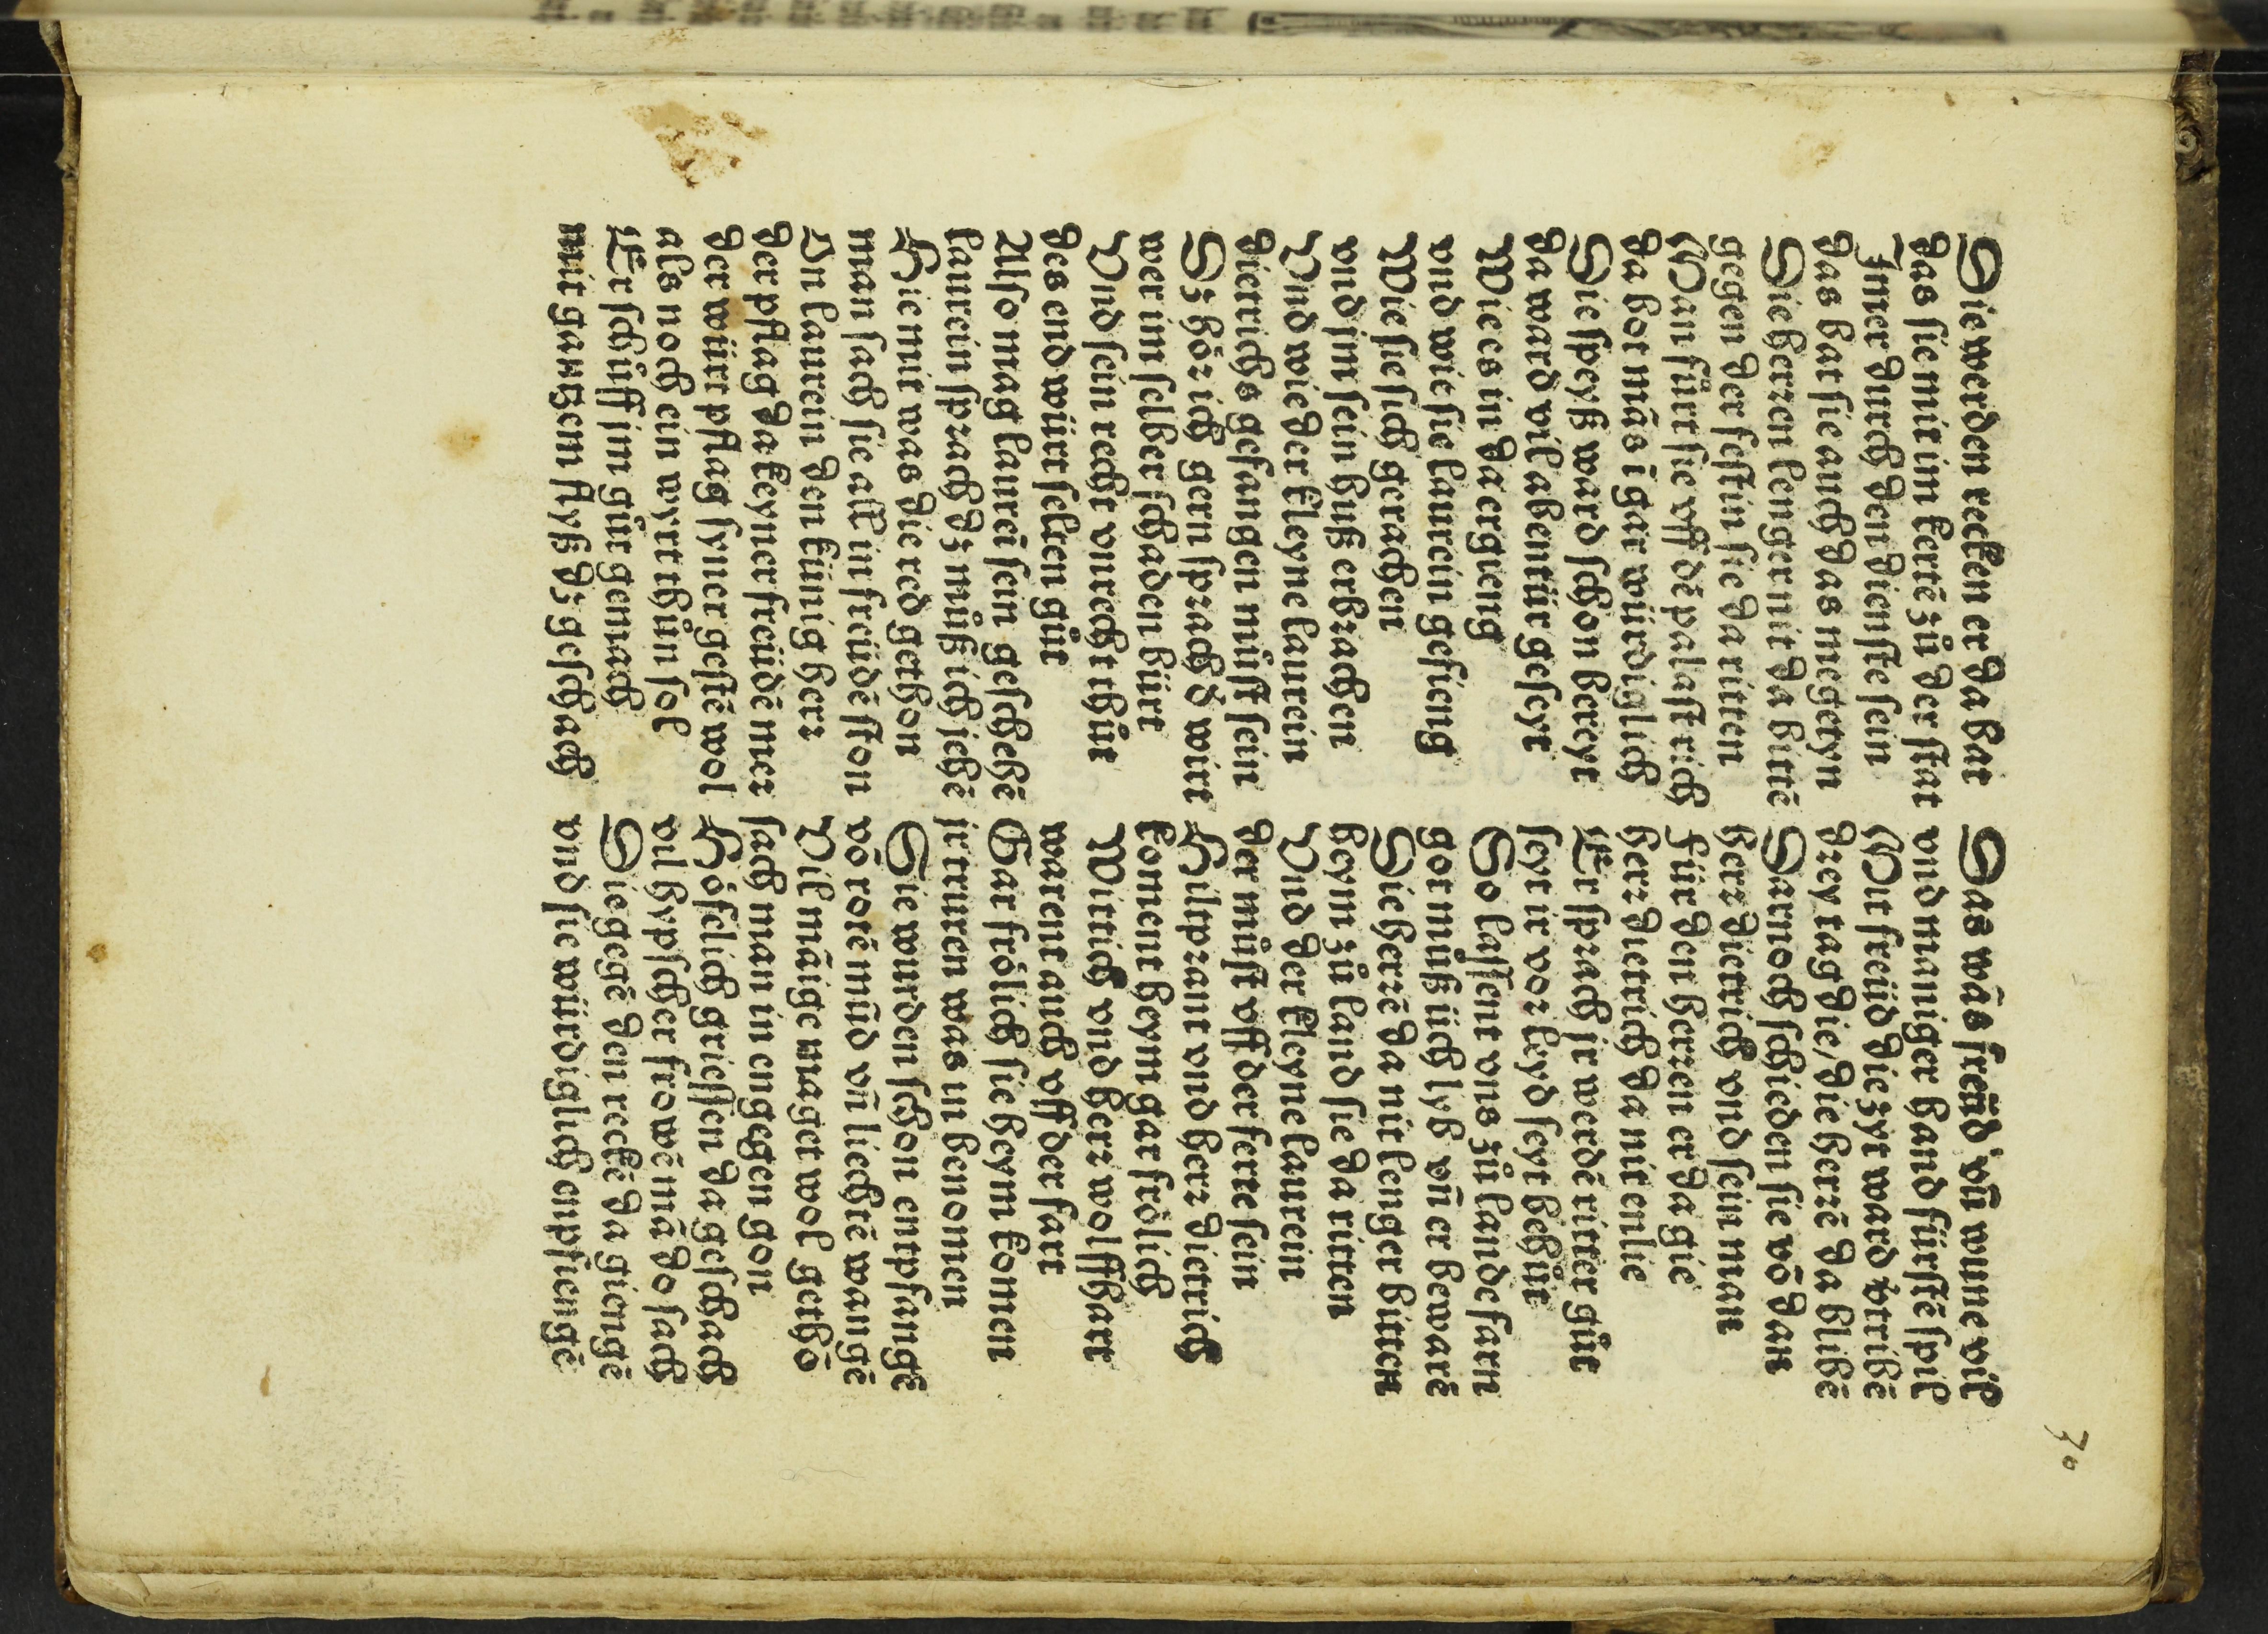 70
Die werden recken er da bat
das sie mit im kertē zů der stat
Inen durch den dienste sein
das bat sie auch das megetyn
Die herren lenger nit da bittē
gegen der festin sie da ritten
Man fůrt sie vff dē palast rich
da bot mās ī gar würdiglich
Die speyß ward schōn bereyt
da ward vil abentür geseyt
Wie es in da ergieng
vnd wie sie laurein gefieng
Wie sie sich gerachen
vnd jm sein huß erbrachen
Vnd wie der kleyne laurein
dietrichs gefangen můst sein
Dz hör ich gern sprach d wirt
wer im selber schaden birt
Vnd sein recht vnrecht thůt
des end würt selten gůt
Also mag laurē sein geschehē
laurein sprach dz můß ich jehē
Hie mit was die red gethon
man sach sie all in freüdē ston
On laurein den künig herr
der pflag da keyner freüdē mer
Der würt pflag syner gestē wol
als noch ein wyrt thůn sol
Er schůff im gůt gemach
mit gantzem flyß dz geschach
Das wās freüd vn̄ wunne vil
vnd maniger hand fürstē spil
Mit freüd die zyt ward v'tribē
drey tag die, die herrē da blibē
Darnoch schieden sie vō dan
herr dietrich vnd sein man
Für den herren er da gie
herr dietrich da nit enlie
Er sprach jr werdē ritter gůt
seyt ir vor leyd seyt behůt
So lassent vns zů lande farn
got můß üch lyb vn̄ er bewarē
Die herrē da nit lenger bitten
heym zů land sie da ritten
Vnd der kleyne laurein
der můst vff der ferte sein
Hiltprant vnd herr dietrich
koment heym gar frölich
Wittich vnd herr wolffhart
warent auch vff der fart
Gar frölich sie heym komen
jr truren was in benomen
Die wurden schon entpfangē
vō rotē mūd vn̄ liechtē wangē
Vil māige maget wol gethō
sach man in engegen gon
Höfelich grieffen da geschach
vil hypscher frowē mā do sach
Die gegē den reckē da giengē
vnd sie würdiglich enpfiengē